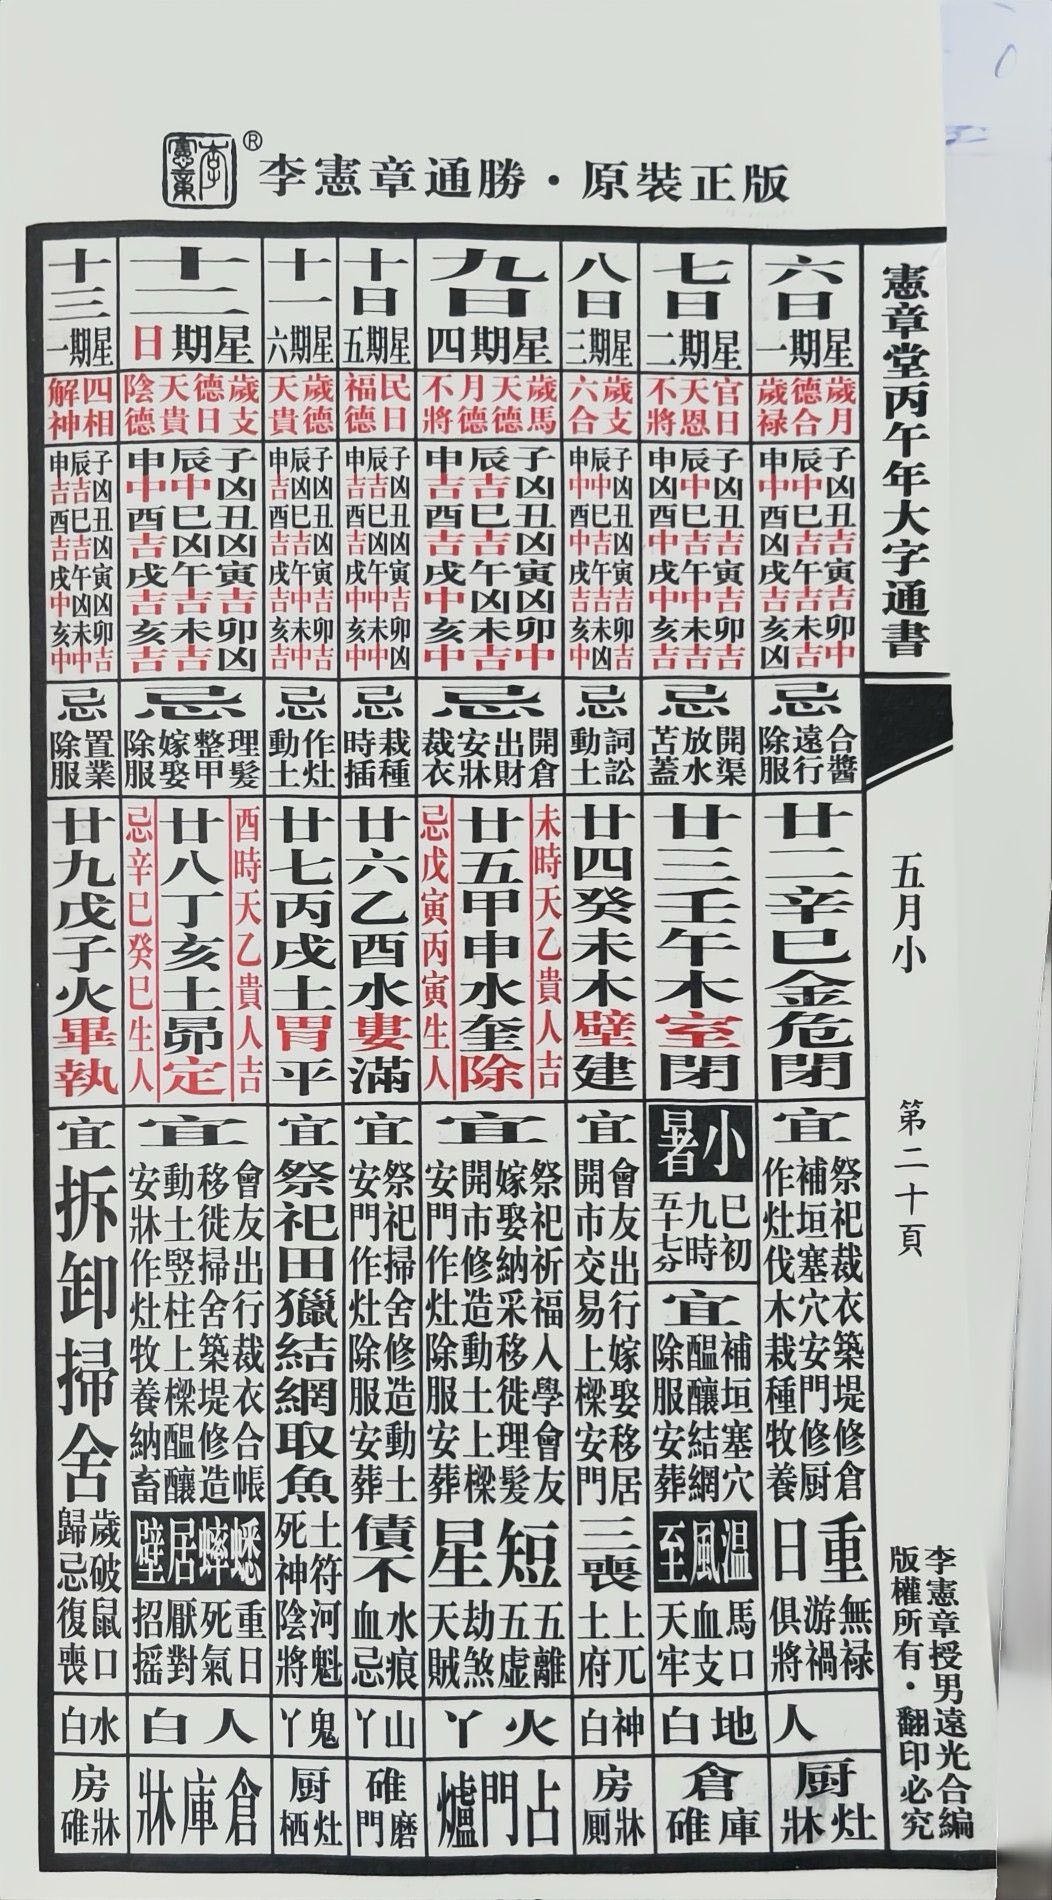 李憲章®李憲章通勝・原裝正版
憲章堂丙午年大字通書
五月小
第二十頁
李憲章授男遠光合編
版權所有・翻印必究
六日
星期一
歲月
德合
歲祿
子凶丑吉寅吉卯中
辰中巳吉午吉未吉
申中酉凶戌吉亥凶
忌
合醬
遠行
除服
廿二辛巳金危閉
宜
祭祀裁衣築堤修倉
補垣塞穴安門修厨
作灶伐木栽種牧養
重日
無祿
游禍
俱將
人
厨
灶牀
七日
星期二
官日
天恩
不將
子凶丑吉寅吉卯吉
辰中巳吉午中未吉
申凶酉中戌中亥吉
忌
開渠
放水
苫蓋
廿三壬午木室閉
小暑
巳初
九時
五十七分
宜
補垣塞穴
醞釀結網
除服安葬
溫風至
馬口
血支
天牢
地白
倉
庫碓
八日
星期三
歲支
六合
子凶丑凶寅吉卯吉
辰中巳吉午吉未凶
申中酉中戌吉亥中
忌
詞訟
動土
廿四癸未木壁建
宜
會友出行嫁娶移居
開市交易上樑安門
三喪
上兀
土府
神白
房
牀厠
九日
星期四
歲馬
天德
月德
不將
子凶丑凶寅凶卯中
辰吉巳吉午凶未吉
申吉酉吉戌中亥中
忌
開倉
出財
安牀
裁衣
未時天乙貴人吉
廿五甲申水奎除
忌戊寅丙寅生人
宜
祭祀祈福入學會友
嫁娶納采移徙理髮
開市修造動土上樑
安門作灶除服安葬
短星
五離
五虛
劫煞
天賊
火丫
占門爐
十日
星期五
民日
福德
子凶丑凶寅吉卯凶
辰吉巳凶午中未中
申吉酉吉戌中亥中
忌
栽種
時插
廿六乙酉水婁滿
宜
祭祀掃舍修造動土
安門作灶除服安葬
債不
水痕
血忌
山丫
碓
磨門
十一
星期六
歲德
天貴
子凶丑凶寅吉卯吉
辰凶巳吉午中未中
申吉酉吉戌吉亥吉
忌
作灶
動土
廿七丙戌土胃平
宜
祭祀田獵結網取魚
土符
死神
河魁
陰將
鬼丫
厨
灶栖
十二
星期日
歲支
德日
天貴
陰德
子凶丑凶寅吉卯凶
辰中巳凶午吉未吉
申中酉吉戌吉亥吉
忌
理髮
整甲
嫁娶
除服
酉時天乙貴人吉
廿八丁亥土昴定
忌辛巳癸巳生人
宜
會友出行裁衣合帳
移徙掃舍築堤修造
動土竪柱上樑醞釀
安牀作灶牧養納畜
蟋蟀居壁
重日
死氣
厭對
招搖
人白
倉庫牀
十三
星期一
四相
解神
子凶丑凶寅凶卯吉
辰吉巳吉午凶未中
申吉酉吉戌中亥中
忌
置業
除服
廿九戊子火畢執
宜
拆卸掃舍
歲破鼠口
歸忌復喪
水白
房
牀碓